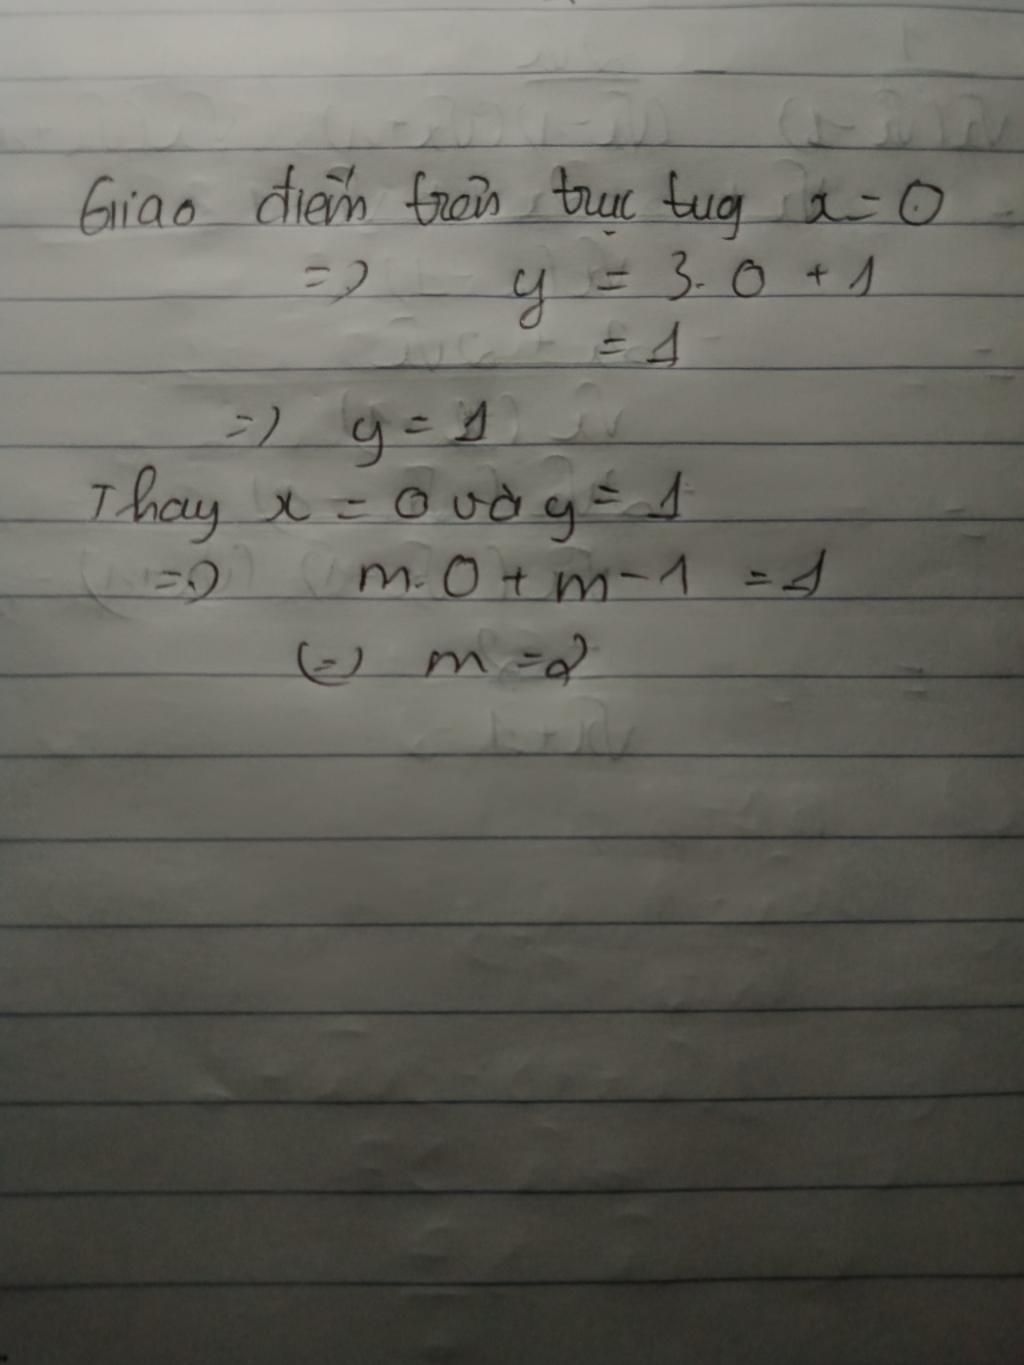 Giao điểm trên trục tug x = 0
=> y = 3. 0 + 1
= 1
=> y = 1
Thay x = 0 và y = 1
=> m. 0 + m - 1 = 1
(=) m = 2